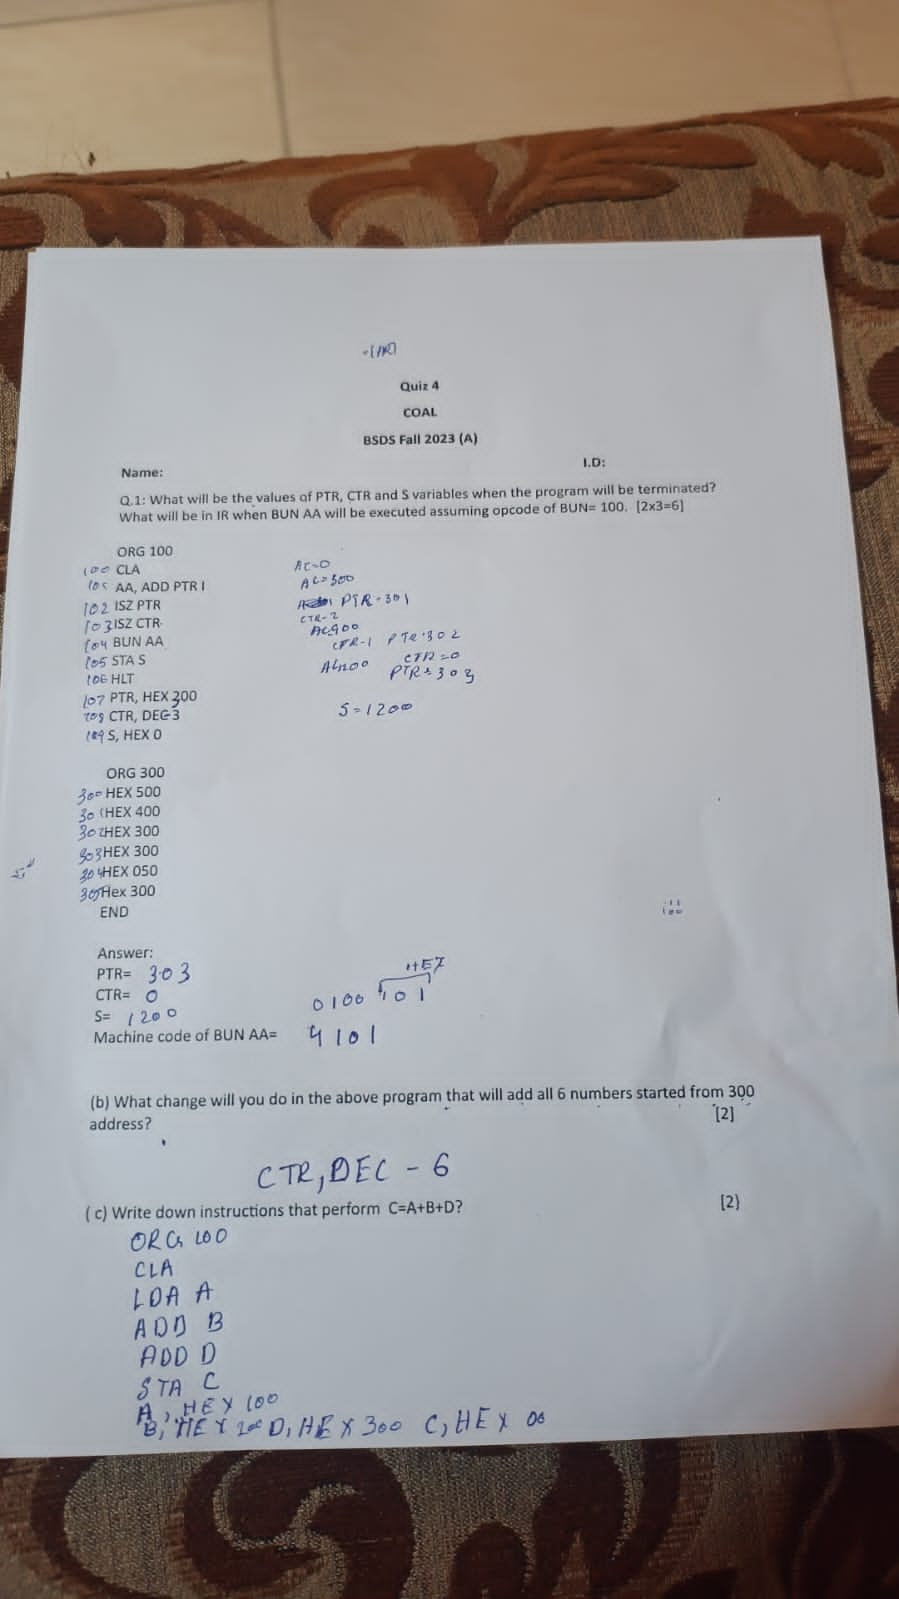 Quiz 4
COAL
BSDS Fall 2023 (A)
Name: I.D:
Q.1: What will be the values of PTR, CTR and S variables when the program will be terminated?
What will be in IR when BUN AA will be executed assuming opcode of BUN= 100. [2x3=6]
ORG 100
100 CLA AC=0
AA, ADD PTR I AC=500
102 ISZ PTR PTR=301
103 ISZ CTR CTR-2
104 BUN AA AC900
CTR-1 PTR=302
105 STA S AC1200 CTR=0
106 HLT PTR=303
107 PTR, HEX 300
108 CTR, DEC-3 S=1200
109 S, HEX 0
ORG 300
300 HEX 500
301 HEX 400
302 HEX 300
303 HEX 300
304 HEX 050
305 Hex 300
END
Answer:
PTR= 303 HEX
CTR= 0 0100 101
S= 1200
Machine code of BUN AA= 4101
(b) What change will you do in the above program that will add all 6 numbers started from 300
address? [2]
CTR, DEC - 6
( c) Write down instructions that perform C=A+B+D? [2}
ORG 100
CLA
LDA A
ADD B
ADD D
STA C
A, HEX 100
B, HEX 200 D, HEX 300 C, HEX 00